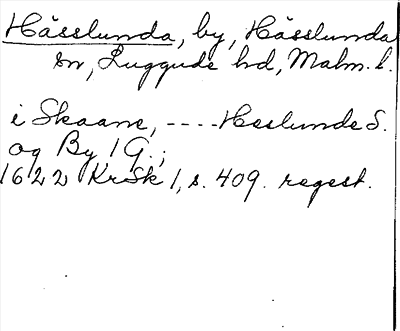 Hässlunda, by, Hässlunda
sn, Luggude hd, Malm. l.
i Skaane, ---- Heslunde S.
og By, 1 G.;
1622 KrSk 1, s. 409. regest.